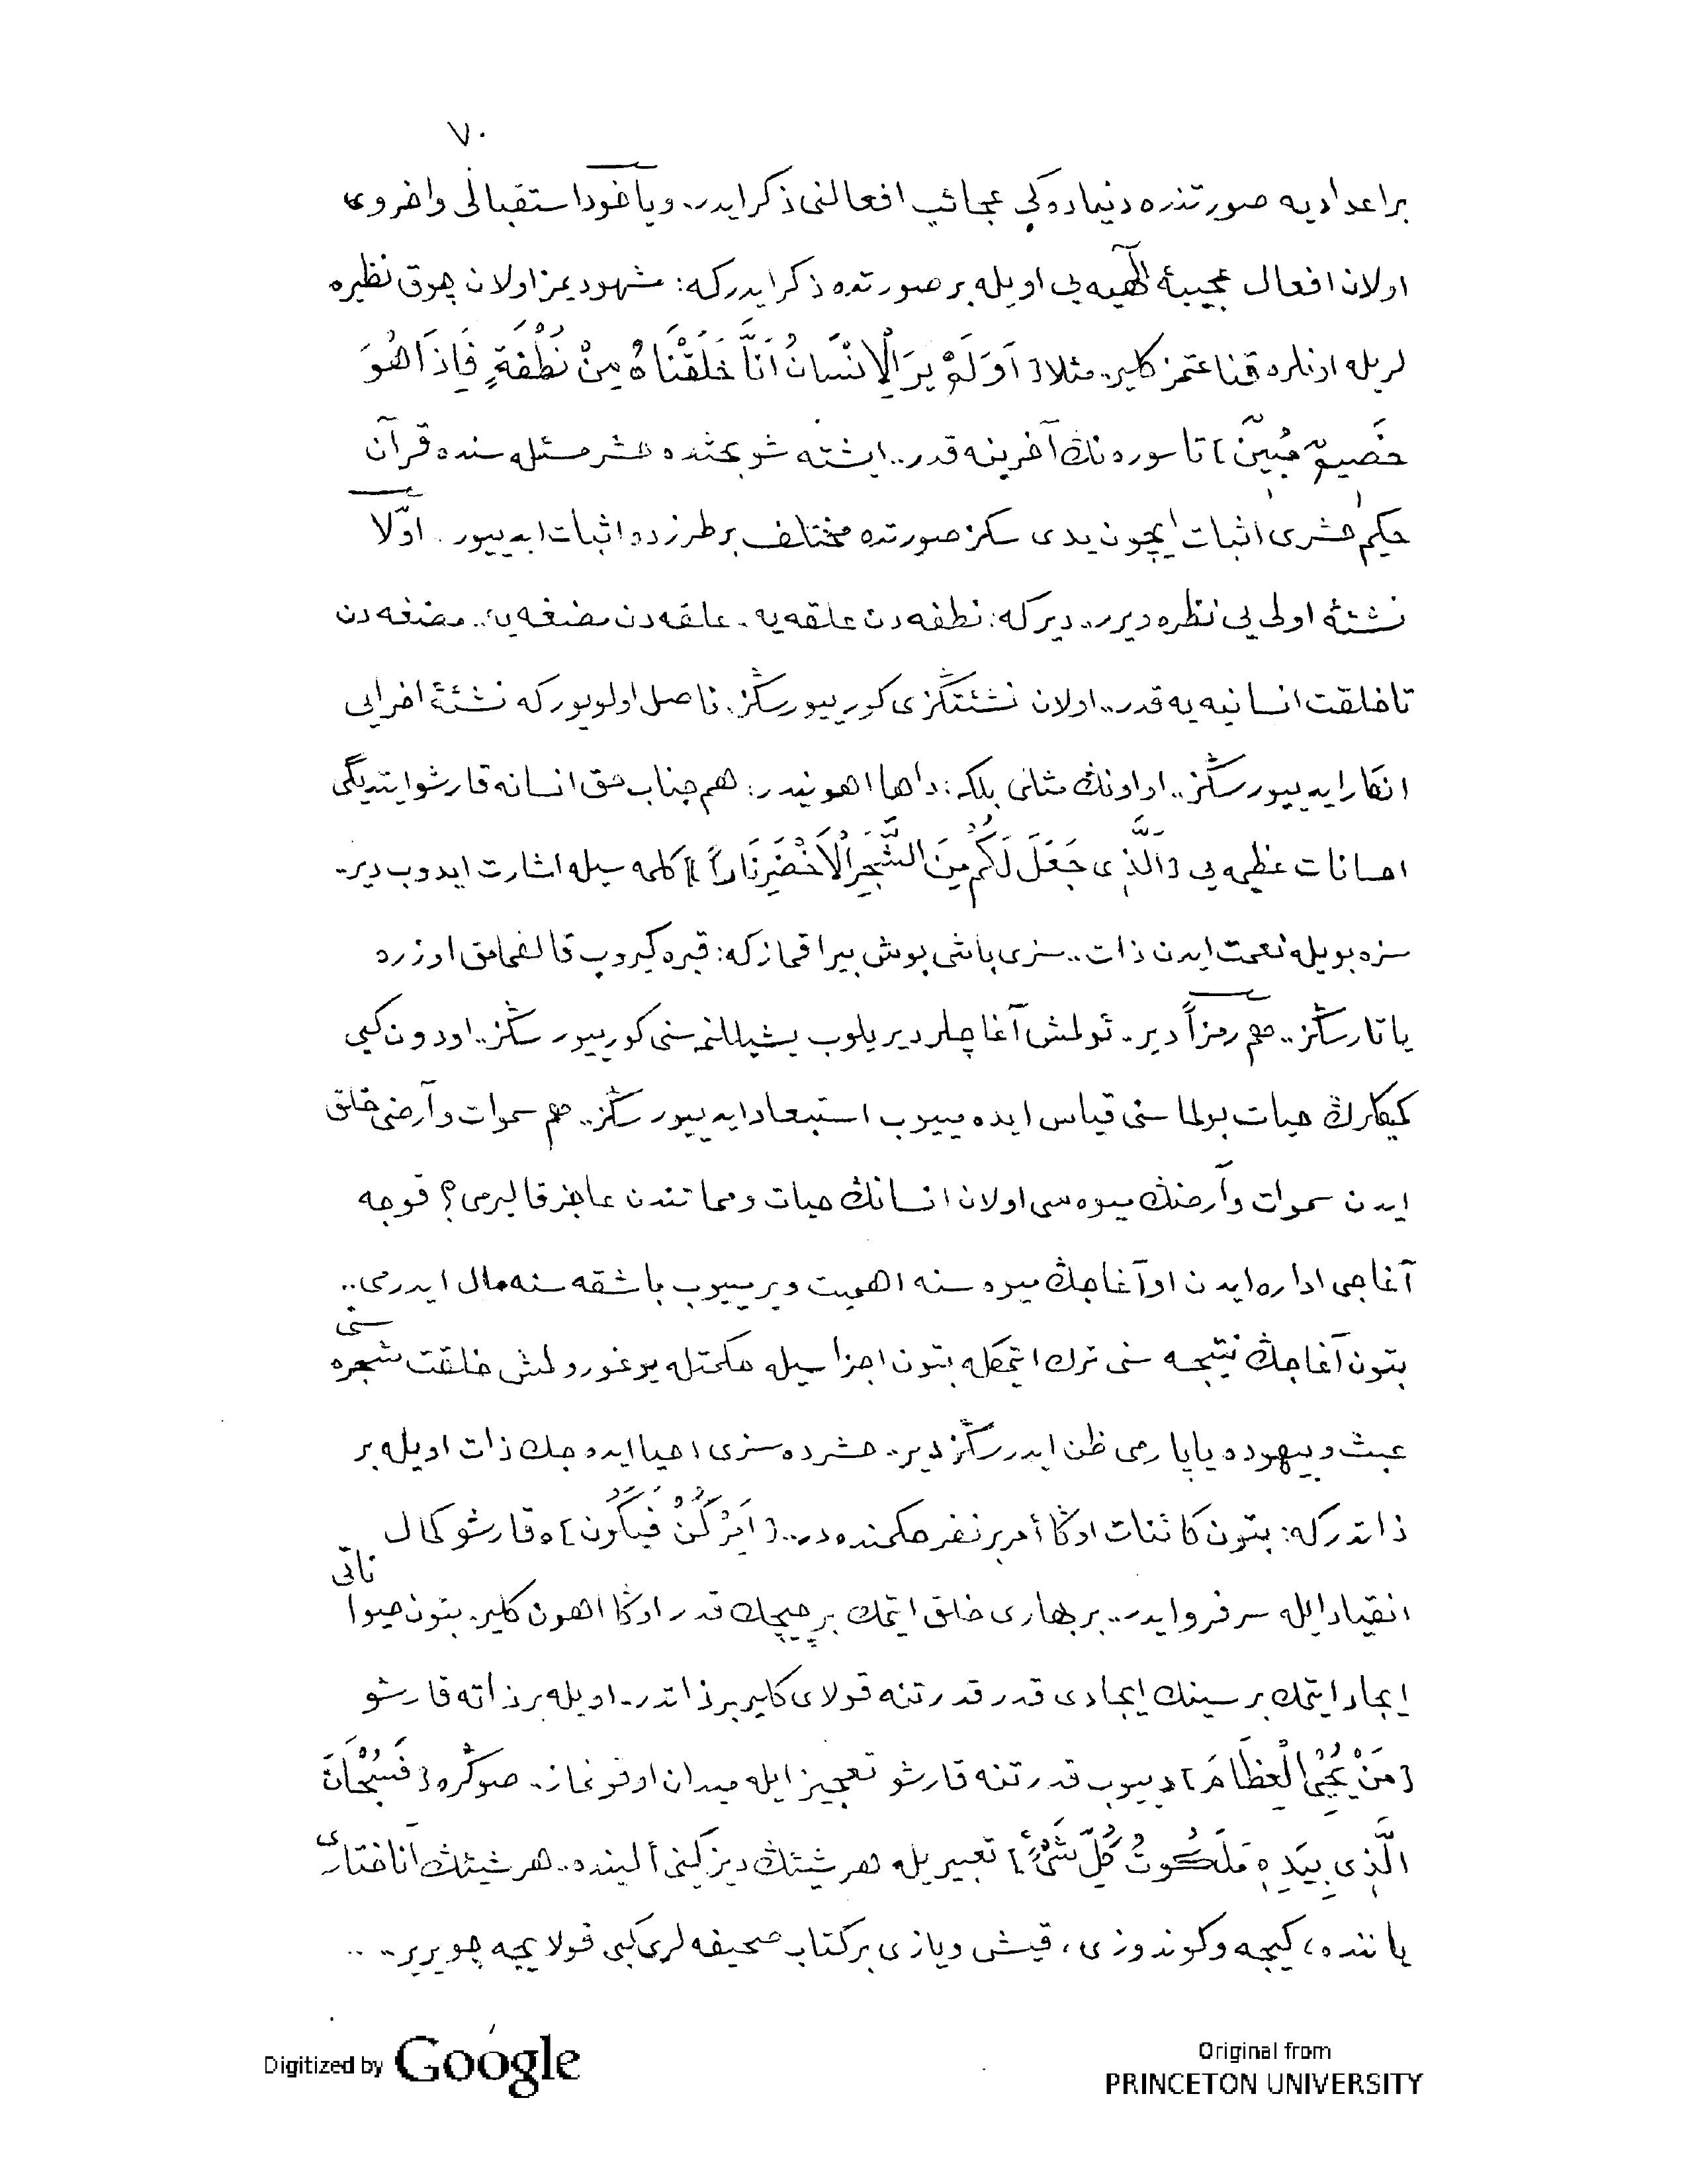 ٧٠
بر اعدادیه صورتنده دنیاده‌كی عجائب افعالنی ذكر ایدر.. ویاخود استقبالی واخروی
اولان افعال عجیبۀ الٓهیه‌یی اویله بر صورتده ذكر ایدر كه: مشهودیمز اولان چوق نظیره
لریله اونلره قناعتمز كلیر. مثلا [اَوَلَمْ يَرَ الْاِنْسَانُ اَنَّا خَلَقْنَاهُ مِنْ نُطْفَةٍ فَاِذَا هُوَ
خَصِيمٌ مُبِينٌ] تا سوره‌نڭ آخرینه قدر.. ایشته شو بحثده حشر مسئله‌سنده قرآن
حكیم حشری اثبات ایچون یدی سكز صورتده مختلف بر طرزده اثبات ایدییور. اوّلا
نشئۀ اولی‌یی نظره ویرر.. دیر كه: نطفه‌دن علقه‌یه. علقه‌دن مضغه‌یه.. مضغه‌دن
تا خلقت انسانیه‌یه قدر.. اولان نشئتڭزی كورییورسڭز. ناصل اولویور كه نشئۀ اخرایی
انكار ایدییورسڭز.. او اونڭ مثلی بلكه: داها اهونیدر: هم جناب حق انسانه قارشو ایتدیگی
احسانات عظیمه‌یی [اَلَّذِى جَعَلَ لَكُمْ مِنَ الشَّجَرِ الْاَخْضَرِ نَاراً] كلمه‌سیله اشارت ایدوب دیر..
سزه بویله نعمت ایدن ذات.. سزی باشی بوش بیراقماز كه: قبره كیروب قالقمامق اوزره
یاتارسڭز.. هم رمزاً دیر. ئولمش آغاچلر دیریلوب یشیللنمه‌سنی كورییورسڭز.. اودون كبی
كمیكلرڭ حیات بولماسنی قیاس ایده‌مییوب استبعاد ایدییورسڭز.. هم سموات وآرضی خلق
ایدن سموات وآرضڭ میوه‌سی اولان انسانڭ حیات ومماتندن عاجز قالیرمی؟ قوجه
آغاجی اداره ایدن او آغاجڭ میوه‌سنه اهمیت ویرمییوب باشقه‌سنه مال ایدرمی..
بتون آغاجڭ نتیجه‌سنی ترك ایتمكله بتون اجزاسیله حكمتله یوغورولمش خلقت شجره‌سنی
عبث وبیهوده یاپارمی ظن ایدرسڭز دیر.. حشرده سزی احیا ایده‌جك ذات اویله بر
ذاتدر كه: بتون كائنات اوڭا أمربر نفر حكمنده‌در.. [اَمْرِ كُنْ فَيَكُونُ]ه قارشو كمال
انقیاد ایله سرفرو ایدر.. بر بهاری خلق ایتمك بر چیچك قدر اوڭا اهون كلیر. بتون حیواناتی
ایجاد ایتمك بر سینك ایجادی قدر قدرتنه قولای كلیر بر ذاتدر. اویله بر ذاته قارشو
[مَنْ يُحْيِى الْعِظَامَ] دییوب قدرتنه قارشو تعجیز ایله میدان اوقونماز. صوڭره [فَسُبْحَانَ
الَّذِى بِيَدِهِ مَلَكُوتُ كُلِّ شَىْءٍ] تعبیریله هر شیئڭ دیزكینی ألینده.. هر شیئڭ آناختاری
یاننده، كیجه وكوندوزی، قیش ویازی بر كتاب صحیفه‌لری كبی قولایجه چویریر.. ..
Digitized by Google
Original from
PRINCETON UNIVERSITY